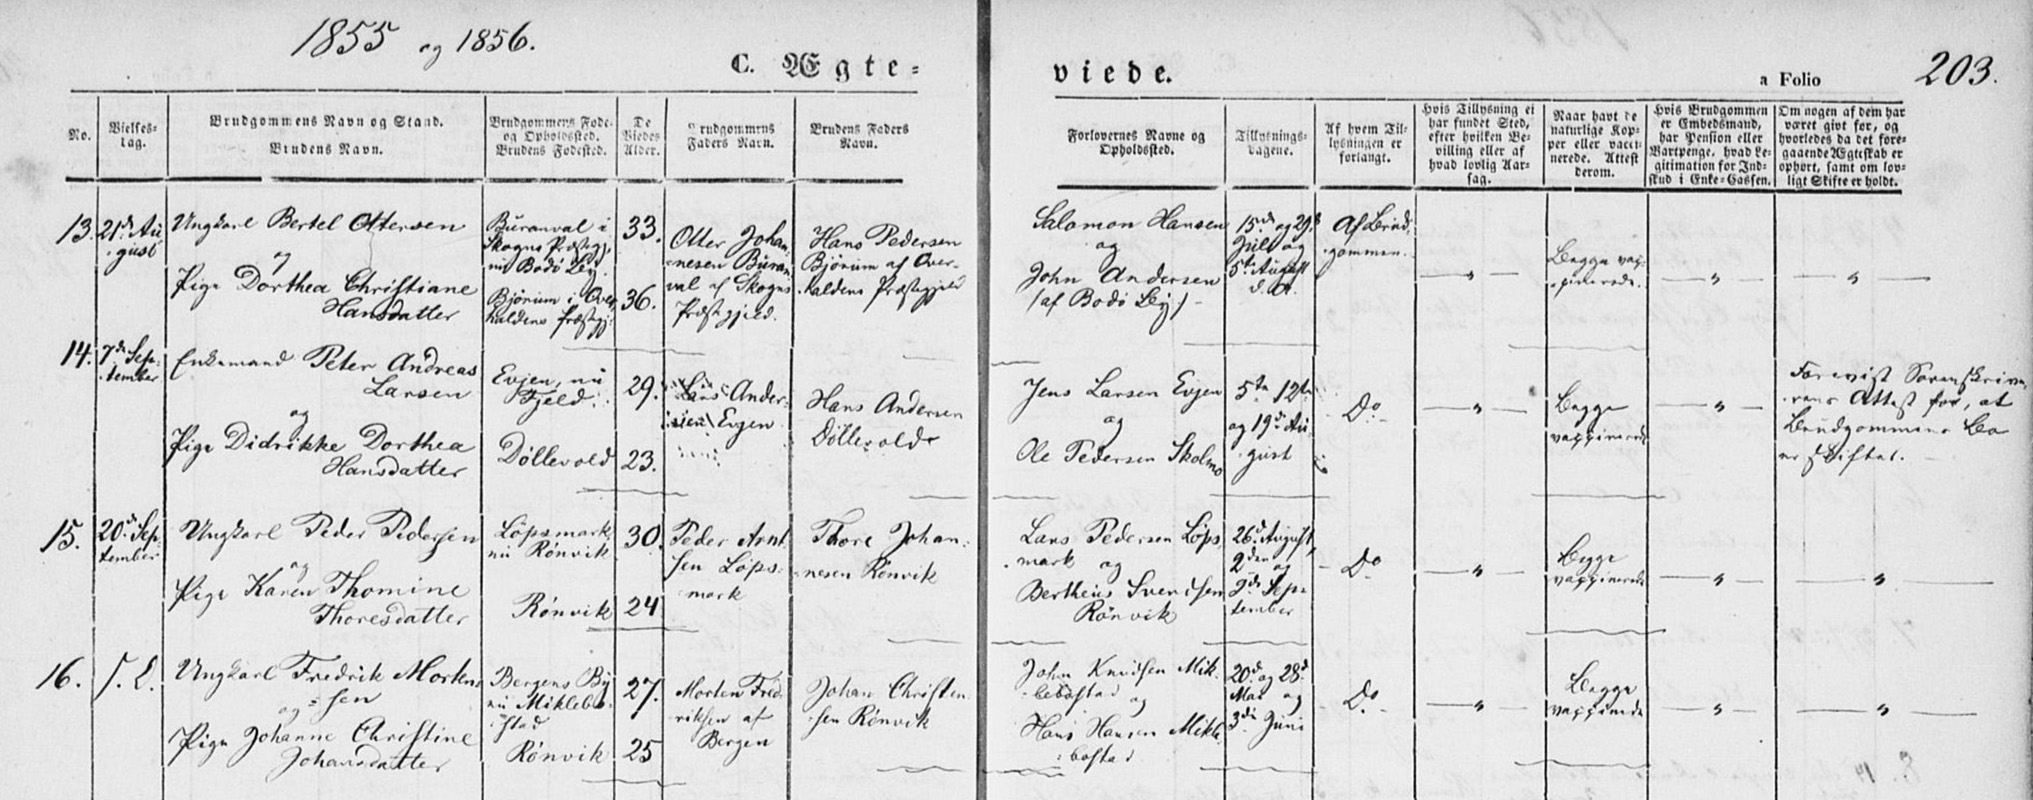 1855 og 1856.
C. Ægte=
viede.
a Folio 203.
No.
Vielses-
dag.
Brudgommens Navn og Stand.
Brudens Navn.
Brudgommens Føde-
og Opholdssted.
Brudens Fødested.
De
Viedes
Alder.
Brudgommens
Faders Navn.
Brudens Faders
Navn.
Forlovernes Navne og
Opholdssted.
Tillysnings-
dagene.
Af hvem Til-
lysningen er
forlangt.
Hvis Tillysning ei
har fundet Sted,
efter hvilken Be-
villing eller af
hvad lovlig Aar-
sag.
Naar havt de
naturlige Kop-
per eller vacci-
nerede. Attest
derom.
Hvis Brudgommen
er Embedsmand,
har Pension eller
Vartpenge, hvad Le-
gitimation for Ind-
skud i Enke-Cassen.
Om nogen af dem har
været givt før, og
hvorledes da det fore-
gaaende Ægteskab er
ophørt, samt om lov-
ligt Skifte er holdt.
13.
21de Au
gust
Ungkarl Bertel Ottersen
og
Pige Dorthea Christiane
Hansdatter
Buranval i
Skogns Præstgj.
nu Bodö By.
Bjørum i Over
haldens Præstgj:
33.
36.
Otter Johan
nesen Buran
val af Skogns
Præstgjeld.
Hans Pedersen
Bjørum af Over-
haldens Præstgjeld
Salomon Hansen
og
John Andersen
(af Bodö By)
15de og 29de
Juli og
5te August
d. A.
Af Brud-
gommen.
— " —
Begge vap-
pinerede.
— " —
— " —
14.
7de Sep-
tember
Enkemand Peter Andreas
Larsen
og
Pige Didrikke Dorthea
Hansdatter
Evjen, nu
Fjeld.
Döllevold
29.
23.
Lars Ander-
sen Evjen
Hans Andersen
Döllevold
Jens Larsen Evjen
og
Ole Pedersen Skolmo
5te 12te
og 19de Au
gust
Do
— " —
Begge
vappinerede
— " —
Forevist Sorenskrive-
rens Attest for, at
Brudgommens Bo
er skiftet.
15.
20de Sep
tember
Ungkarl Peder Pedersen
og
Pige Karen Thomine
Thoresdatter
Löpsmark
nu Rønvik
Rønvik
30.
24
Peder Arnt
sen Löps-
mark
Thore Johan-
nesen Rønvik
Lars Pedersen Löps
mark og
Bertheus Svendsen
Rønvik
26de August,
2den og
9de Sep-
tember
Do
— " —
Begge
vappinerede
— " —
— " —
16.
S. D.
Ungkarl Fredrik Morten
sen
og
Pige Johanne Christine
Johansdatter
Bergens By
nu Miklebo-
stad
Rønvik
27.
25
Morten Fred-
riksen af
Bergen
Johan Christen
sen Rønvik
John Knudsen Mik-
lebostad
og
Hans Hansen Mikle
bostad
20de og 28de
Mai og
3die Juni
Do
— " —
Begge
vappinerede
— " —
— " —